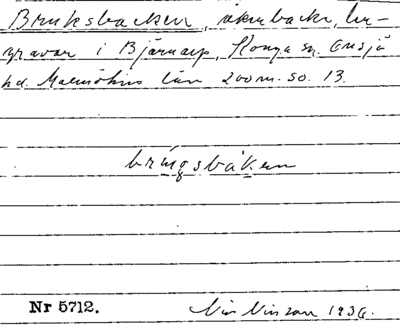 Bruksbacken, åkerbacke, lu-
gravar i Bjärnarp, Konga sn. Onsjö
hd. Malmöhus län 200 m. so. 13.
bringsbáken
Nr 5712.
1936.